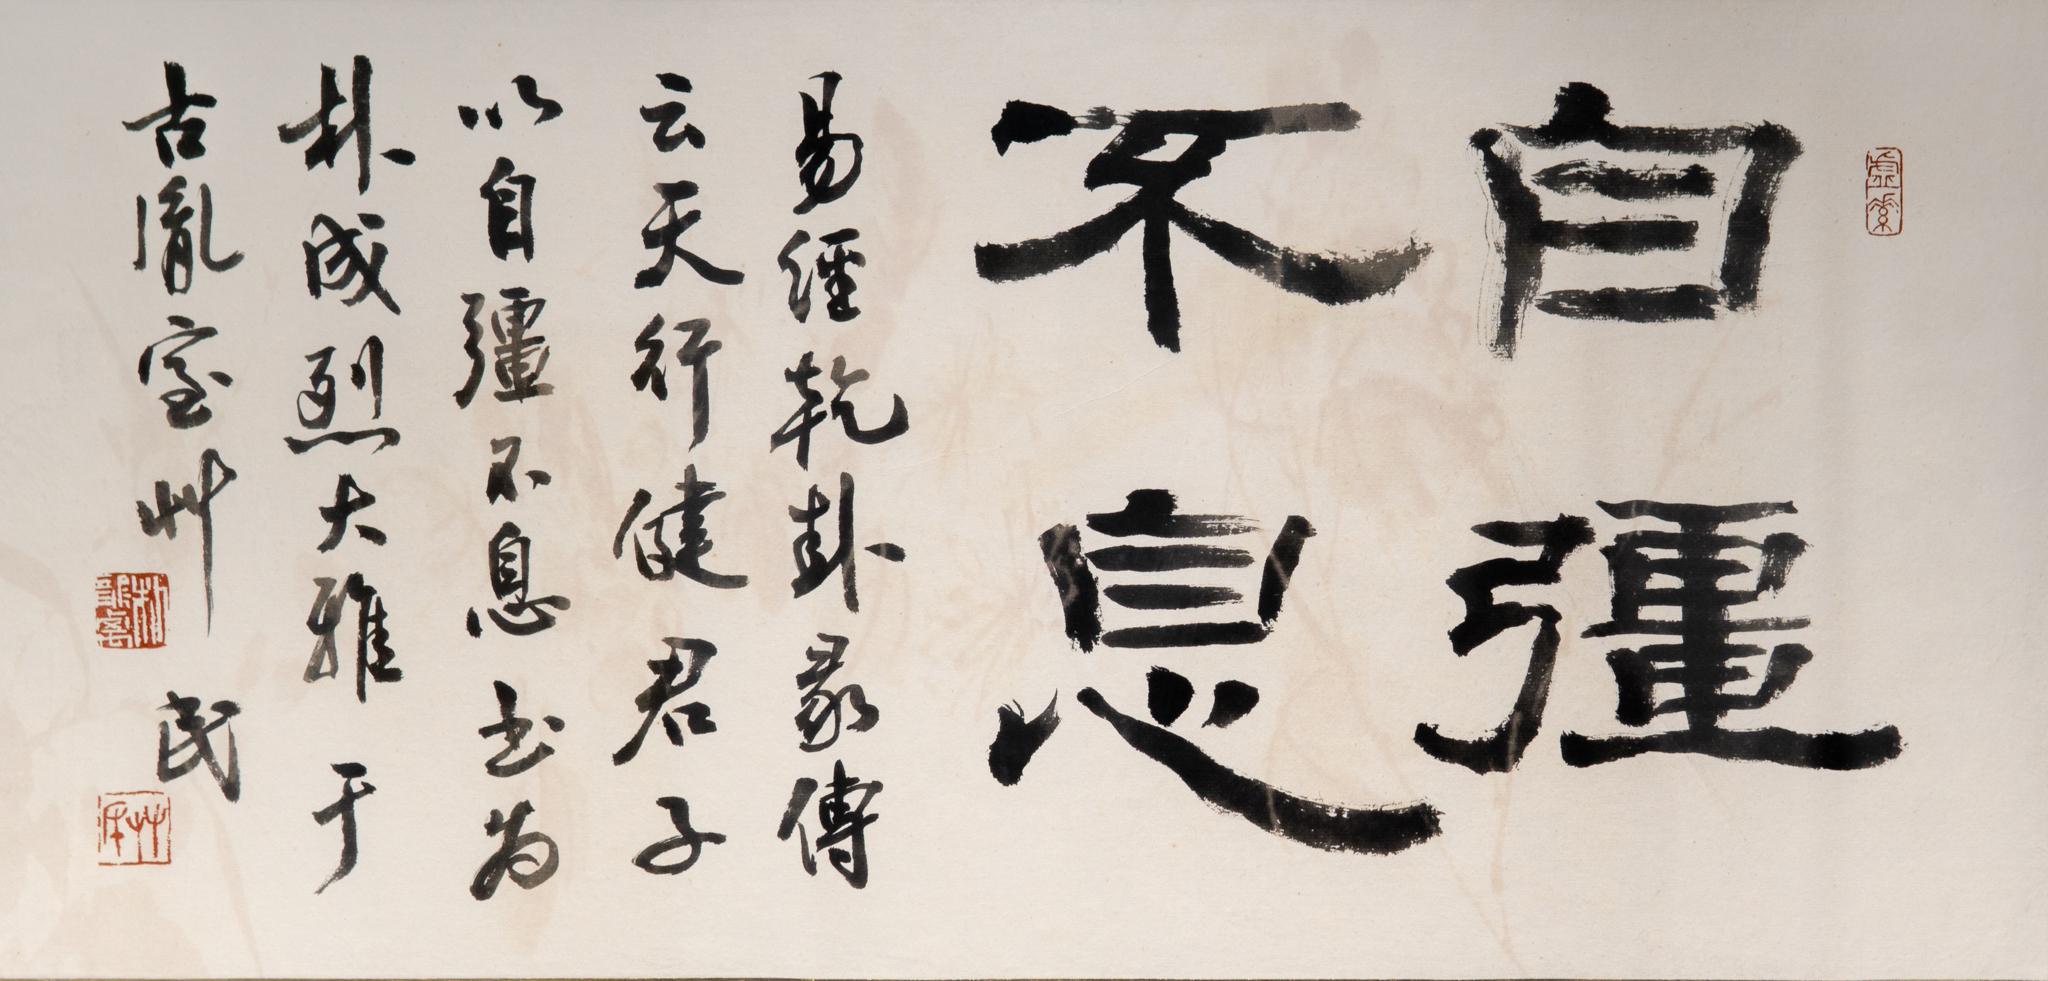 自彊
不息
易經乾卦彖傳
云天行健君子
以自彊不息書為
朴成烈大雅于
古胤室艸 民